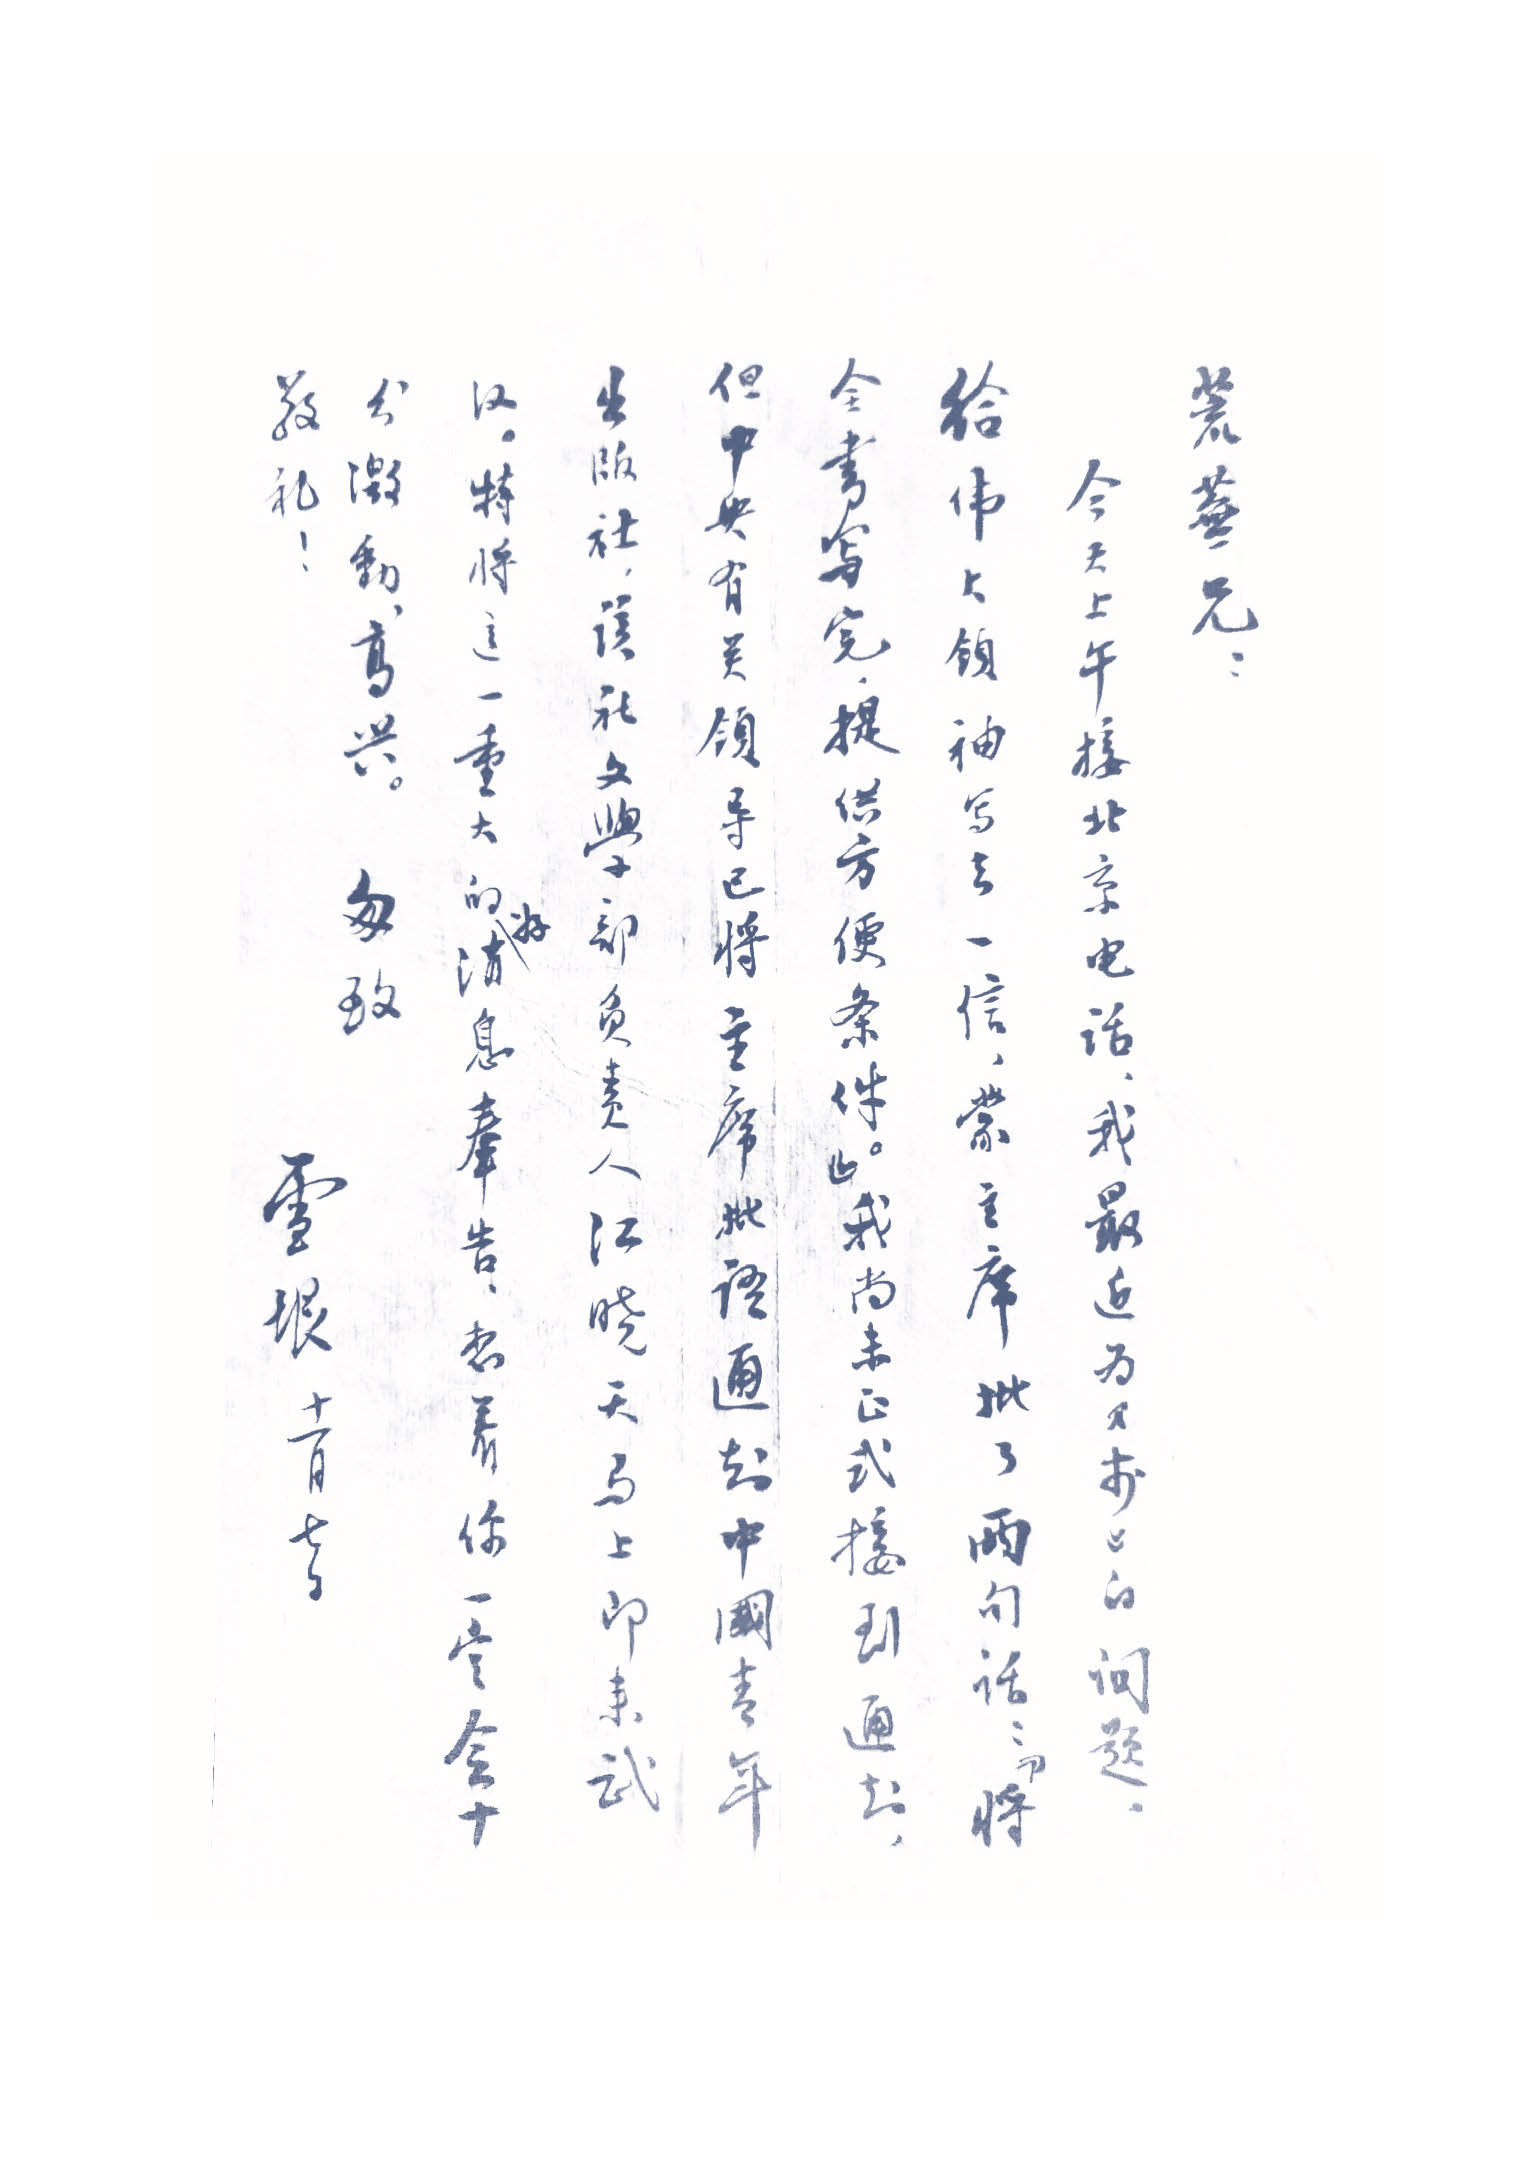 荒蕪兄：
今天上午接北京电话，我最近为《李》的问题，
给伟大领袖写去一信，蒙主席批了两句话：「将
全书写完，提供方便条件。」我尚未正式接到通知，
但中央有关领导已将主席批语通知中國青年
出版社，该社文學部负责人江晓天马上即来武
汉。特将这一重大的好消息奉告，想着你一定会十
分激動、高兴。 匆致
敬礼！
雪垠 十一月七日